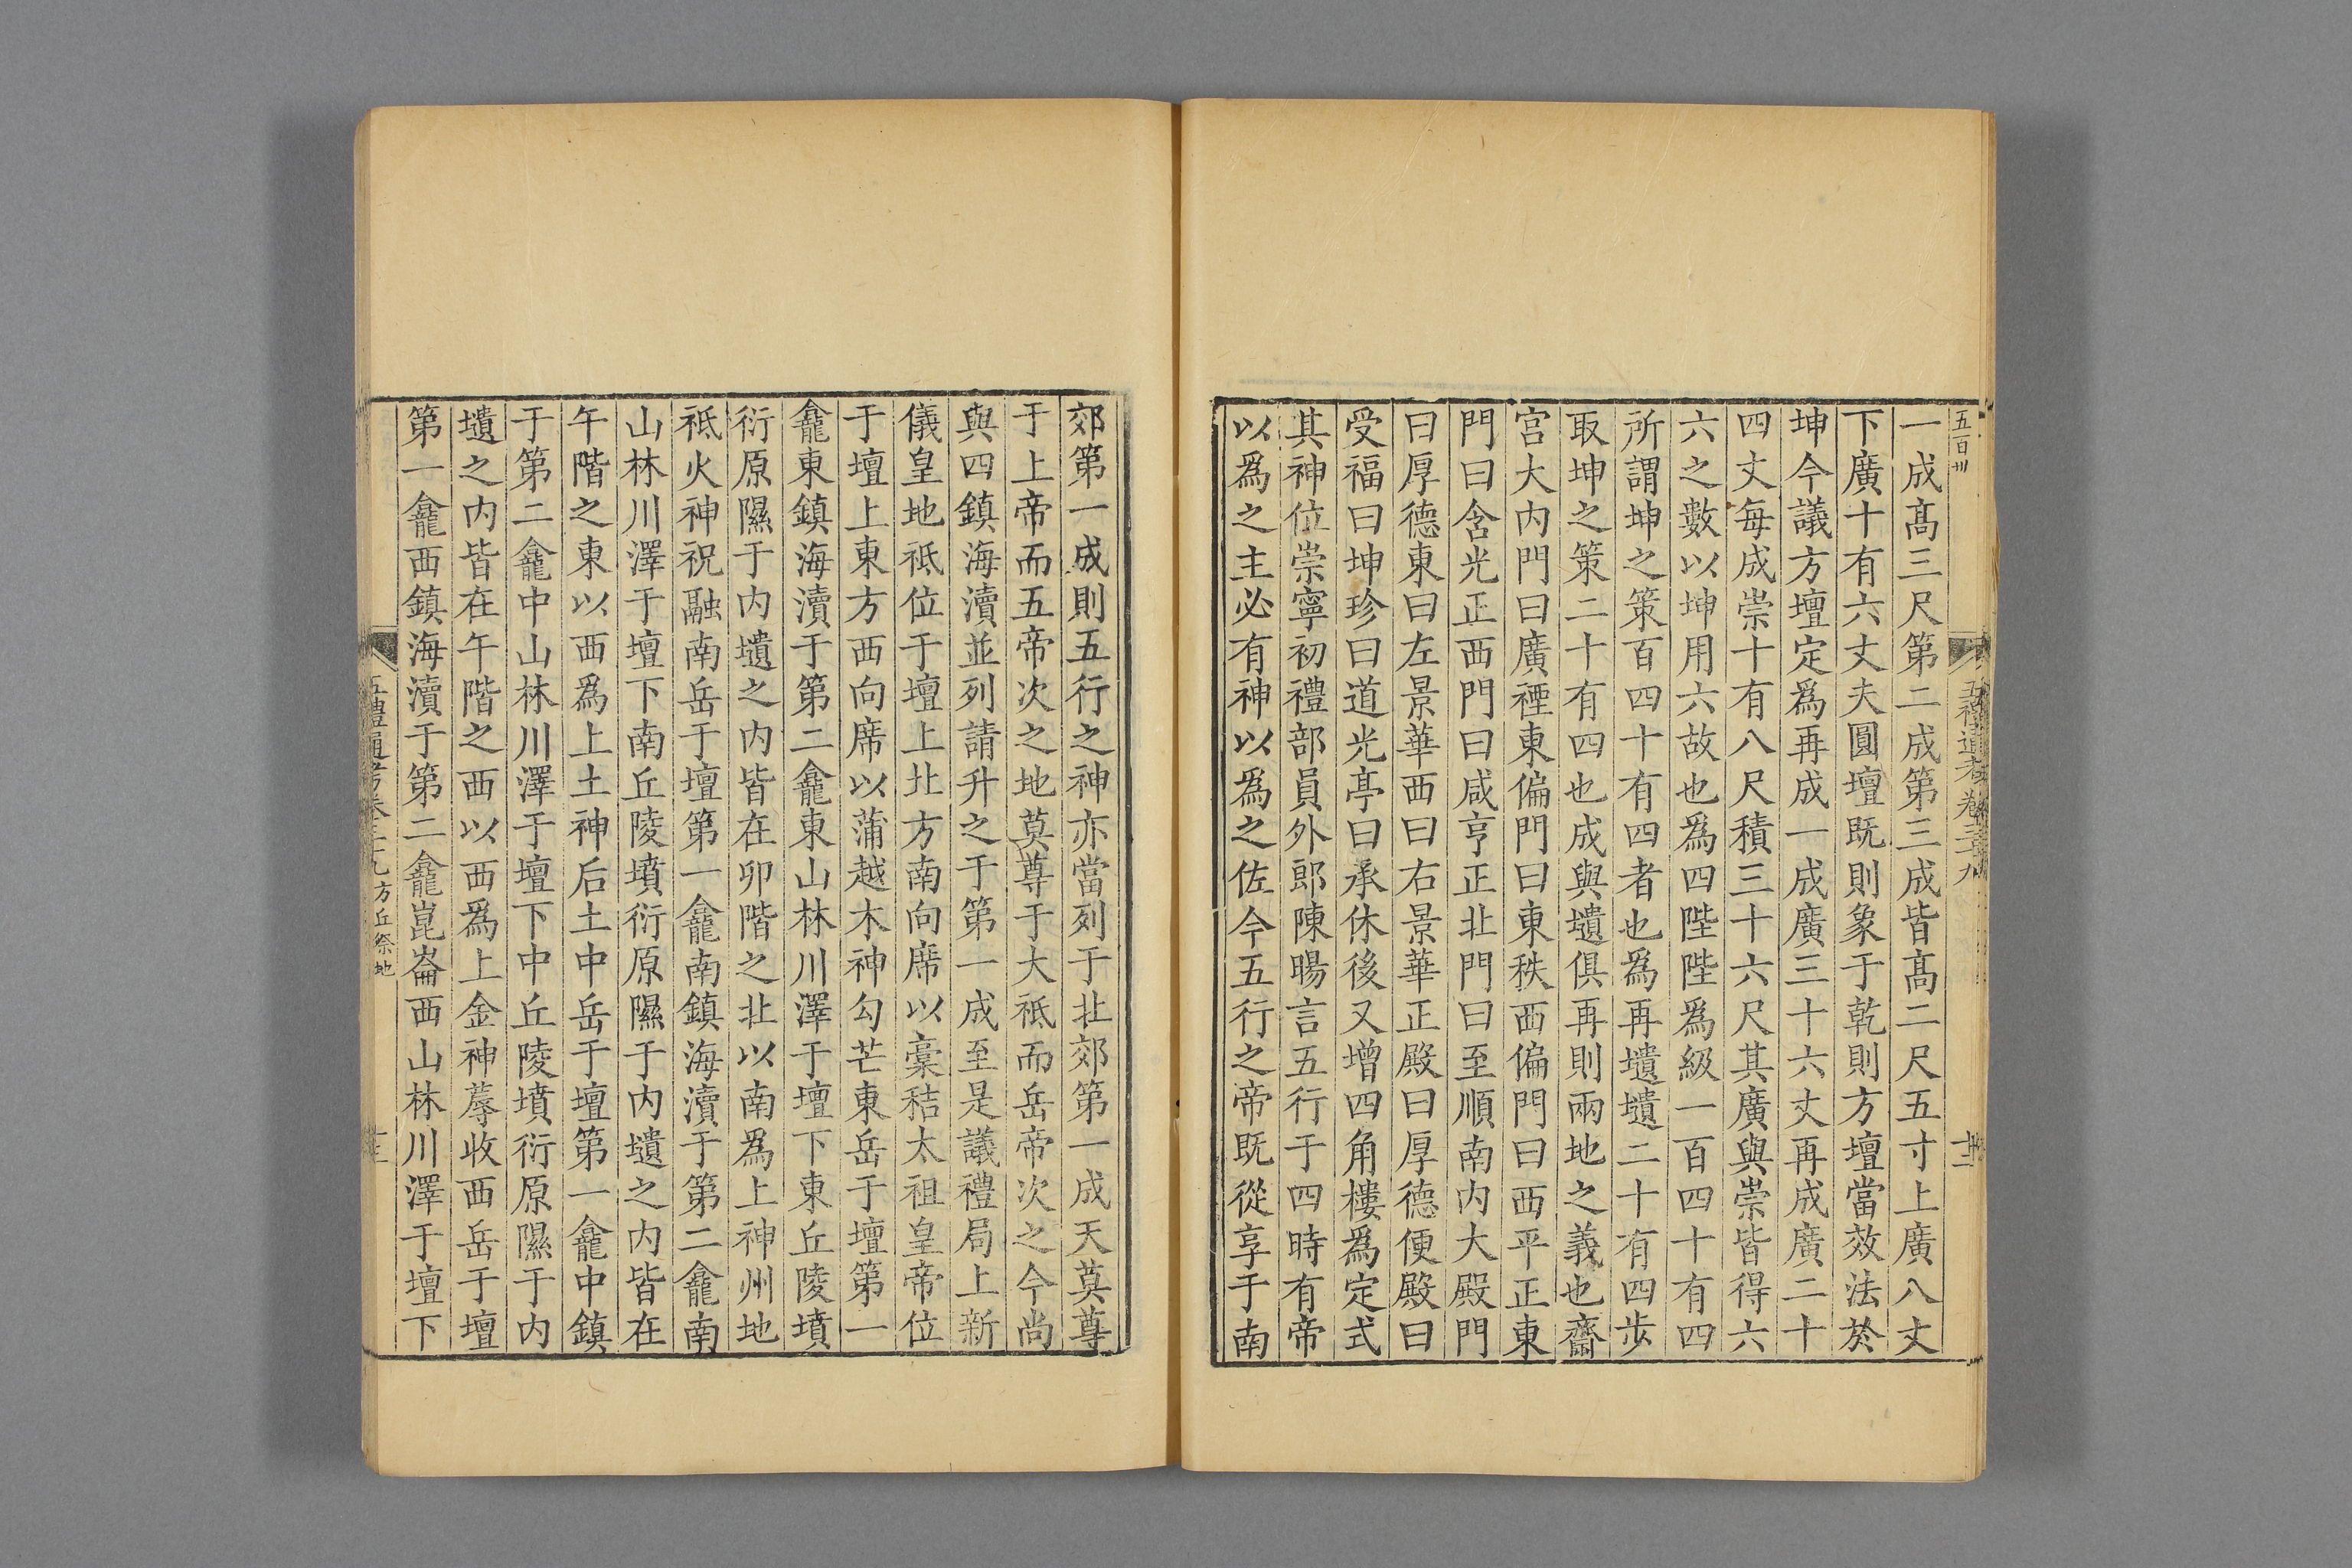 五百卅
五禮通考卷三十九
十二
一成高三尺第二成第三成皆高二尺五寸上廣八丈
下廣十有六丈夫圓壇既則象于乾則方壇當效法於
坤今議方壇定爲再成一成廣三十六丈再成廣二十
四丈每成崇十有八尺積三十六尺其廣與崇皆得六
六之數以坤用六故也爲四陛陛爲級一百四十有四
所謂坤之策百四十有四者也爲再壝壝二十有四步
取坤之策二十有四也成與壝俱再則兩地之義也齋
宮大內門曰廣禋東偏門曰東秩西偏門曰西平正東
門曰含光正西門曰咸亨正北門曰至順南內大殿門
曰厚德東曰左景華西曰右景華正殿曰厚德便殿曰
受福曰坤珍曰道光亭曰承休後又增四角樓爲定式
其神位崇寧初禮部員外郎陳暘言五行于四時有帝
以爲之主必有神以爲之佐今五行之帝既從享于南
郊第一成則五行之神亦當列于北郊第一成天莫尊
于上帝而五帝次之地莫尊于大祗而岳帝次之今尚
與四鎮海瀆並列請升之于第一成至是議禮局上新
儀皇地祗位于壇上北方南向席以藁秸太祖皇帝位
于壇上東方西向席以蒲越木神勾芒東岳于壇第一
龕東鎮海瀆于第二龕東山林川澤于壇下東丘陵墳
衍原隰于內壝之內皆在卯階之北以南爲上神州地
祗火神祝融南岳于壇第一龕南鎮海瀆于第二龕南
山林川澤于壇下南丘陵墳衍原隰于內壝之內皆在
午階之東以西爲上土神后土中岳于壇第一龕中鎮
于第二龕中山林川澤于壇下中丘陵墳衍原隰于內
壝之內皆在午階之西以西爲上金神蓐收西岳于壇
第一龕西鎮海瀆于第二龕崑崙西山林川澤于壇下
五禮通考卷三十九 方丘祭地